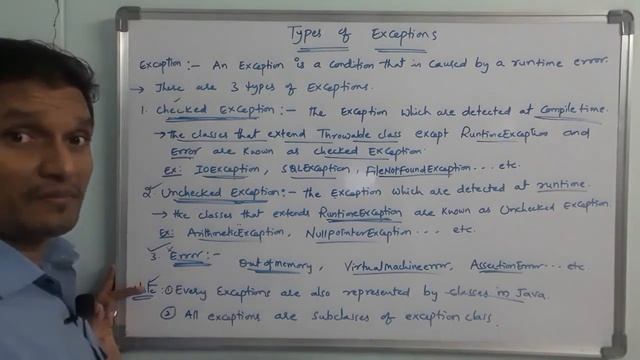 Types of Exceptions
Exception:- An Exception is a condition that is caused by a runtime error.
→ There are 3 types of Exceptions.
1. Checked Exception:- The Exception which are detected at Compile time.
→ the classes that extend Throwable class except RuntimeException and
Error are known as checked Exception.
Ex: IOException, SQLException, FileNotFoundException... etc.
2. Unchecked Exception:- the Exception which are detected at runtime.
→ the classes that extends RuntimeException are known as Unchecked Exception.
Ex: ArithmeticException, NullPointerException... etc.
3. Error:-
Outofmemory, VirtualMachineerror, AssertionError... etc
① Every Exceptions are also represented by classes in Java.
② All exceptions are subclasses of exception class.